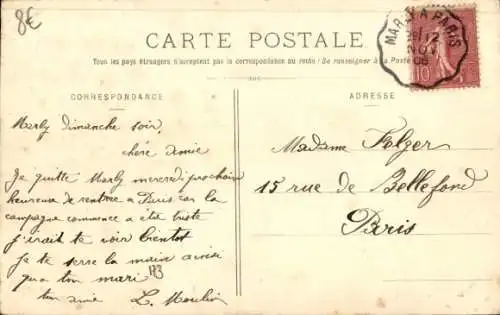 8€
CARTE POSTALE
Tous les pays étrangers n'acceptent pas la correspondance au recto (Se renseigner à la Poste
CORRESPONDANCE
ADRESSE
MARLY A PARIS
12
NOV
06
10
Marly dimanche soir,
chère amie
Je quitte Marly mercredi prochain
heureuse de rentrer a Paris car la
campagne commence a être triste
j'irait te voir bientot
je te serre la main ainsi
qu'a ton mari
ton amie L. Moulin
Madame Folzer
15 rue de Bellefond
Paris